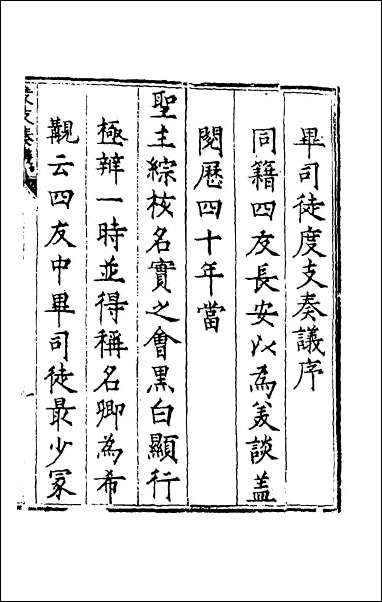 畢司徒度支奏議序
同籍四友長安以為美談蓋
閱歷四十年當
聖主綜核名實之會黑白顯行
極辯一時並得稱名卿為希
覯云四友中畢司徒最少冢
度支奏議